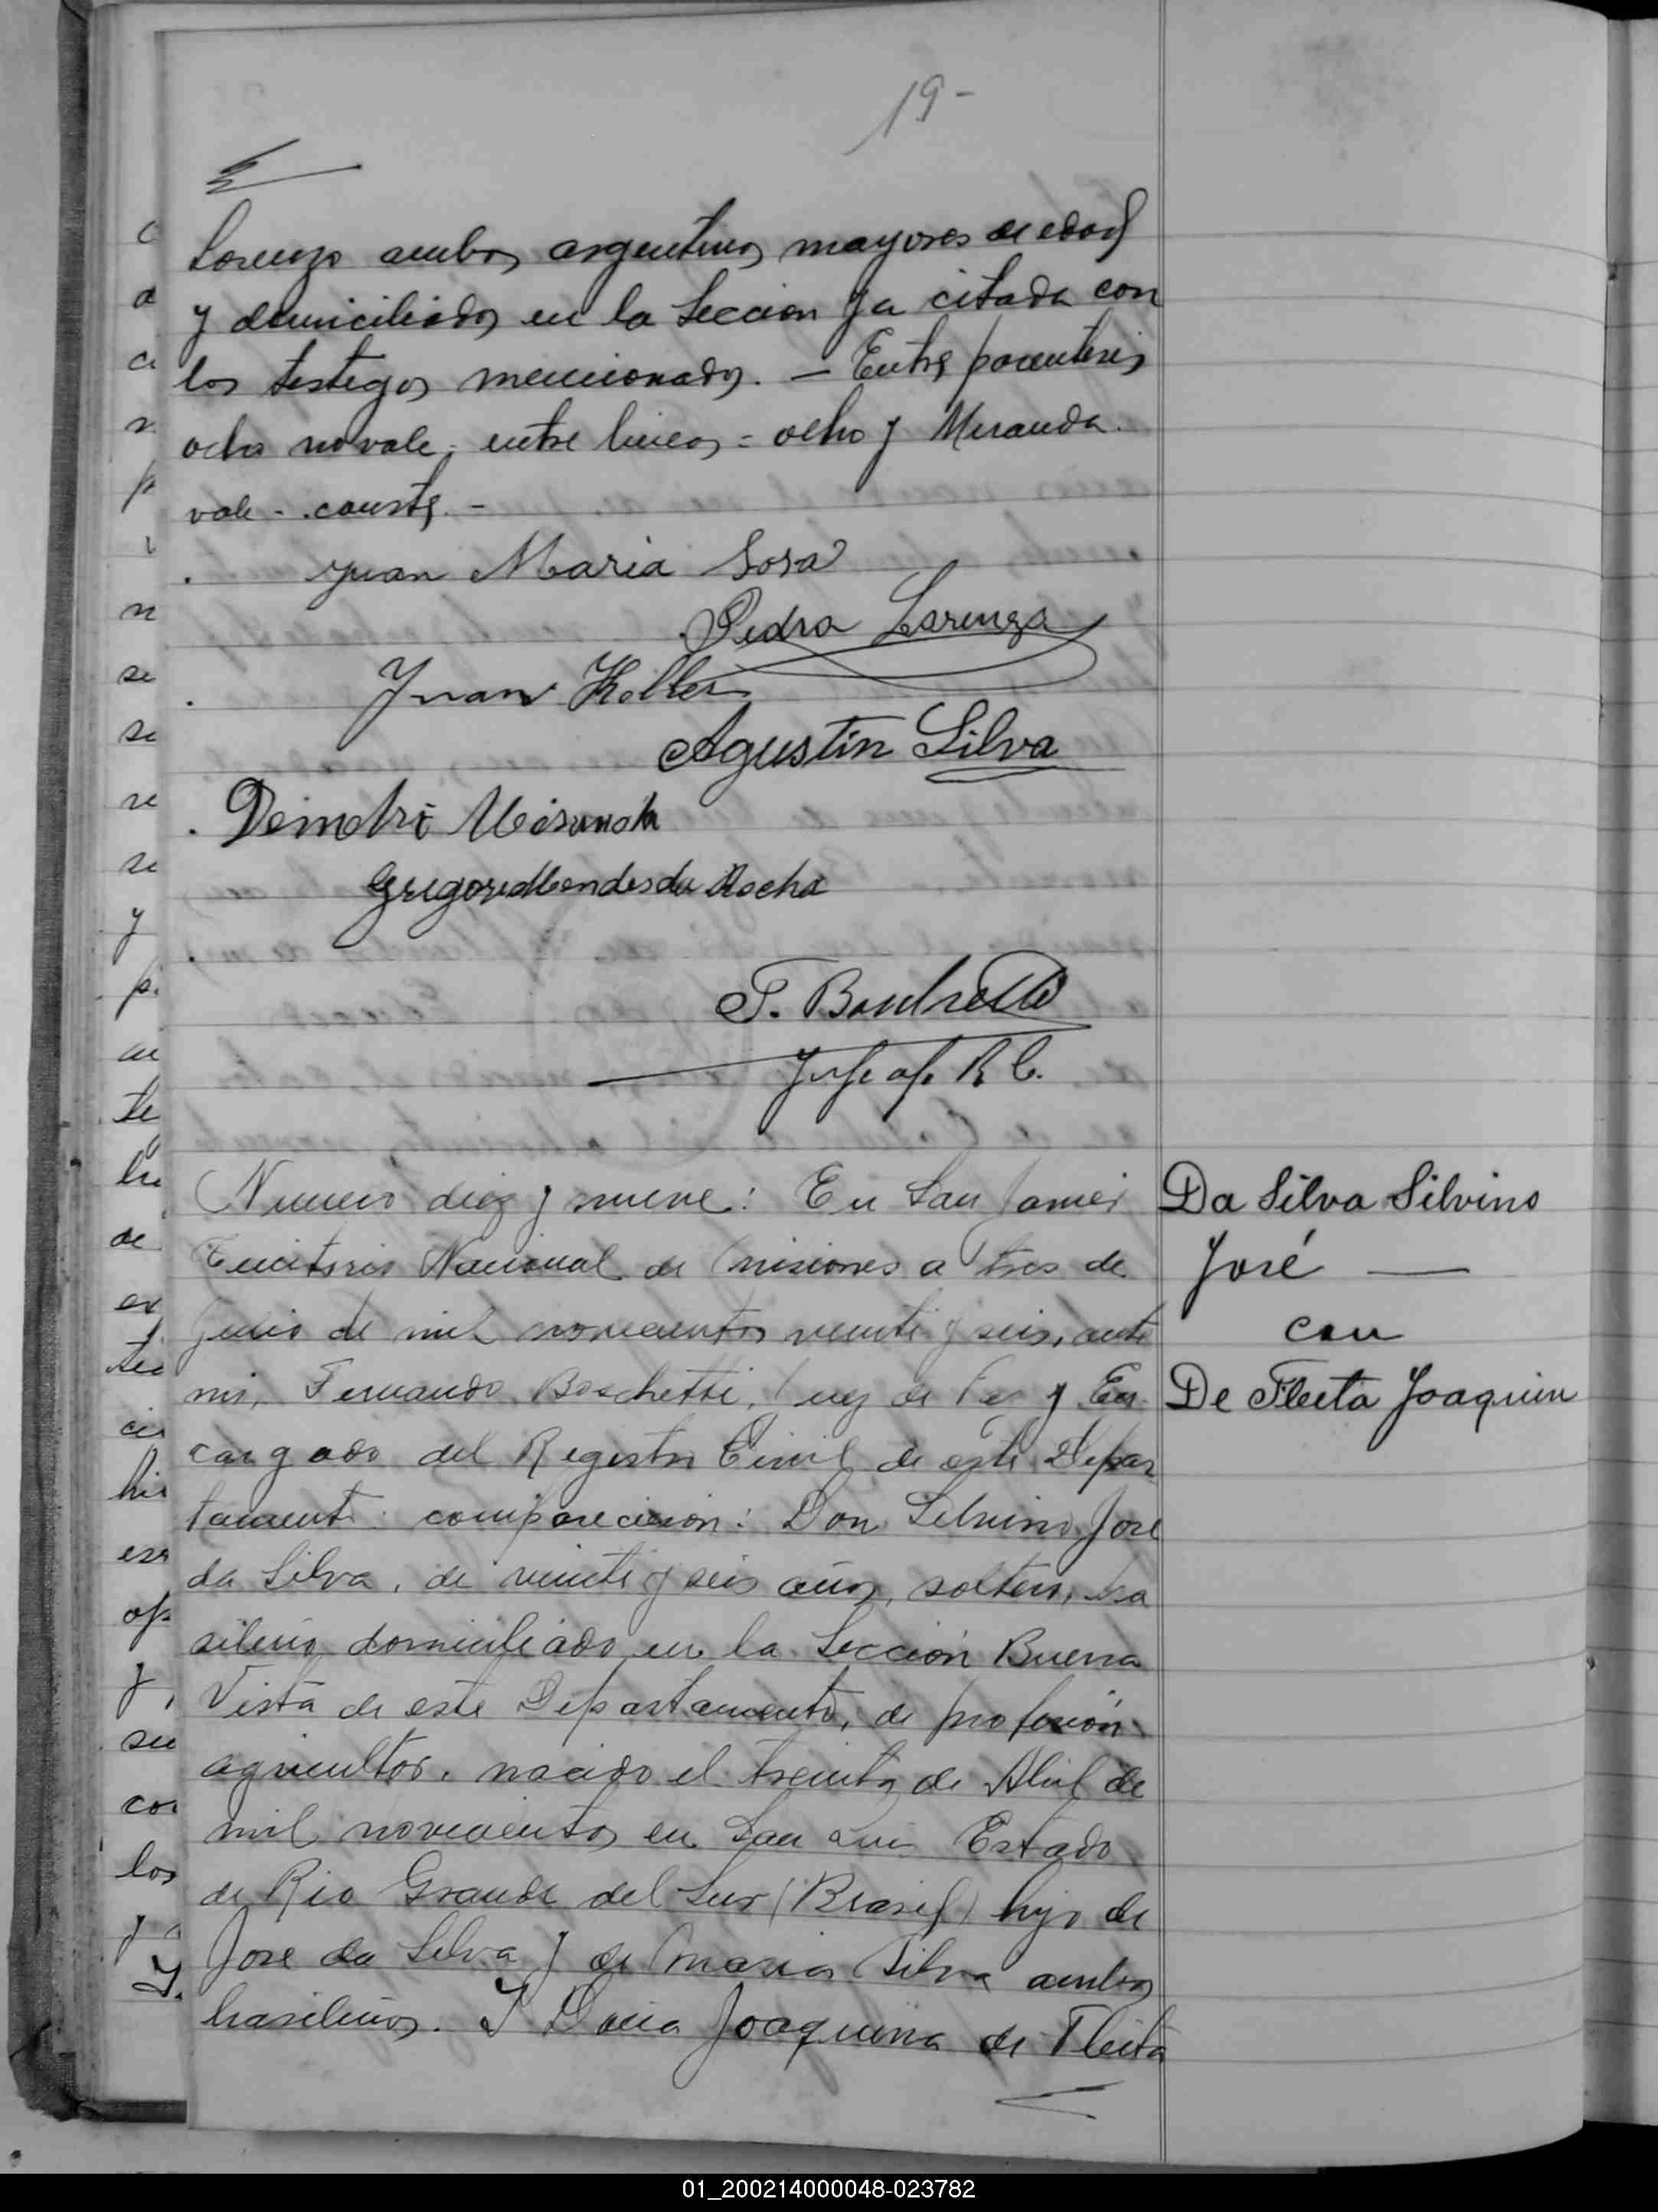 19-
Lorenzo ambos argentinos mayores de edad
y domiciliados en la Seccion ya citada con
los testigos mencionados. — Entre parentesis
ocho no vale, entre lineas = ocho y Miranda.
vale - . conste. -
Juan Maria Sosa
Pedro Lorenzo
Juan Keller
Agustin Silva
Demetri Miranda
Gregorio Mendes da Rocha
F. Boschetti
Jefe of. R C.
Numero diez y nueve: En San Javier
Territorio Nacional de Misiones a tres de
Julio de mil novecientos veinte y seis, ante
mi, Fernando Boschetti, Juez de Paz y En
cargado del Registro Civil de este Depar
tamento comparecieron: Don Silvino Jose
da Silva, de veinte y seis años, soltero, bra
sileño domiciliado en la Sección Buena
Vista de este Departamento, de profesión
agricultor, nacido el treinta de Abril de
mil novecientos en San Luis Estado
de Rio Grande del Sur (Brasil) hijo de
Jose da Silva y de Maria Silva ambos
brasileños. Y Doña Joaquina de Fleita
Da Silva Silvino
José —
con
De Fleita Joaquin
01_200214000048-023782